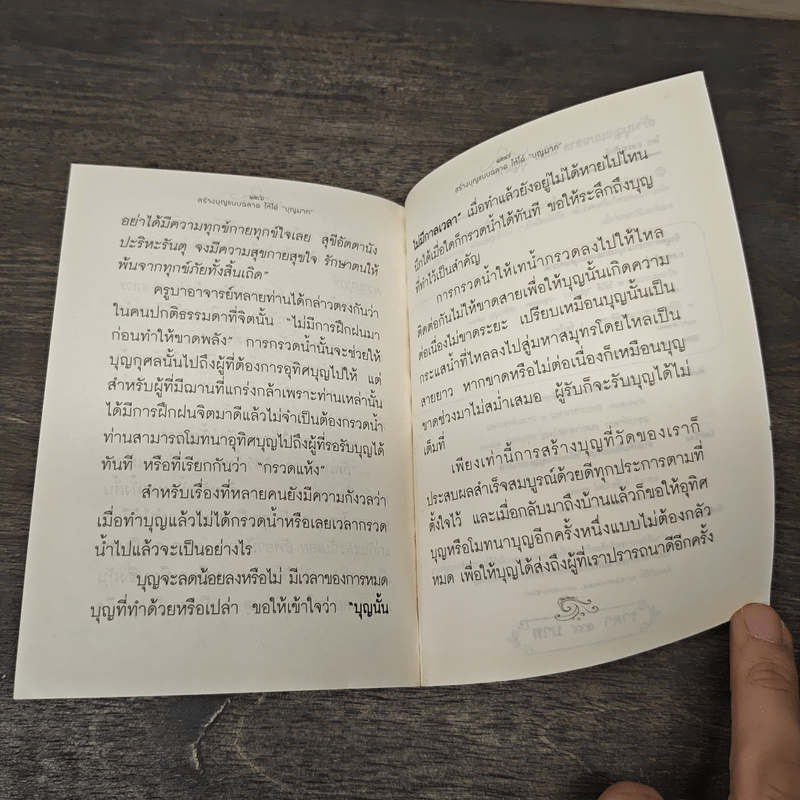 สร้างบุญแบบฉลาด ให้ได้ "บุญมาก"
อย่าได้มีความทุกข์กายทุกข์ใจเลย สุขีอัตตานัง
ปะริหะรันตุ จงมีความสุขกายสุขใจ รักษาตนให้
พ้นจากทุกข์ภัยทั้งสิ้นเถิด"
ครูบาอาจารย์หลายท่านได้กล่าวตรงกันว่า
ในคนปกติธรรมดาที่จิตนั้น "ไม่มีการฝึกฝนมา
ก่อนทำให้ขาดพลัง" การกรวดน้ำนั้นจะช่วยให้
บุญกุศลนั้นไปถึงผู้ที่ต้องการอุทิศบุญไปให้ แต่
สำหรับผู้ที่มีฌานที่แกร่งกล้าเพราะท่านเหล่านั้น
ได้มีการฝึกฝนจิตมาดีแล้วไม่จำเป็นต้องกรวดน้ำ
ท่านสามารถโมทนาอุทิศบุญไปถึงผู้ที่รอรับบุญได้
ทันที หรือที่เรียกกันว่า "กรวดแห้ง"
สำหรับเรื่องที่หลายคนยังมีความกังวลว่า
เมื่อทำบุญแล้วไม่ได้กรวดน้ำหรือเลยเวลากรวด
น้ำไปแล้วจะเป็นอย่างไร
บุญจะลดน้อยลงหรือไม่ มีเวลาของการหมด
บุญที่ทำด้วยหรือเปล่า ขอให้เข้าใจว่า "บุญนั้น
สร้างบุญแบบฉลาด ให้ได้ "บุญมาก"
ไม่มีกาลเวลา" เมื่อทำแล้วยังอยู่ไม่ได้หายไปไหน
นึกได้เมื่อใดก็กรวดน้ำได้ทันที ขอให้ระลึกถึงบุญ
ที่ทำไว้เป็นสำคัญ
การกรวดน้ำให้เทน้ำกรวดลงไปให้ไหล
ติดต่อกันไม่ให้ขาดสายเพื่อให้บุญนั้นเกิดความ
ต่อเนื่องไม่ขาดระยะ เปรียบเหมือนบุญนั้นเป็น
กระแสน้ำที่ไหลลงไปสู่มหาสมุทรโดยไหลเป็น
สายยาว หากขาดหรือไม่ต่อเนื่องก็เหมือนบุญ
ขาดช่วงมาไม่สม่ำเสมอ ผู้รับก็จะรับบุญได้ไม่
เต็มที่
เพียงเท่านี้การสร้างบุญที่วัดของเราก็
ประสบผลสำเร็จสมบูรณ์ด้วยดีทุกประการตามที่
ตั้งใจไว้ และเมื่อกลับมาถึงบ้านแล้วก็ขอให้อุทิศ
บุญหรือโมทนาบุญอีกครั้งหนึ่งแบบไม่ต้องกลัว
หมด เพื่อให้บุญได้ส่งถึงผู้ที่เราปรารถนาดีอีกครั้ง